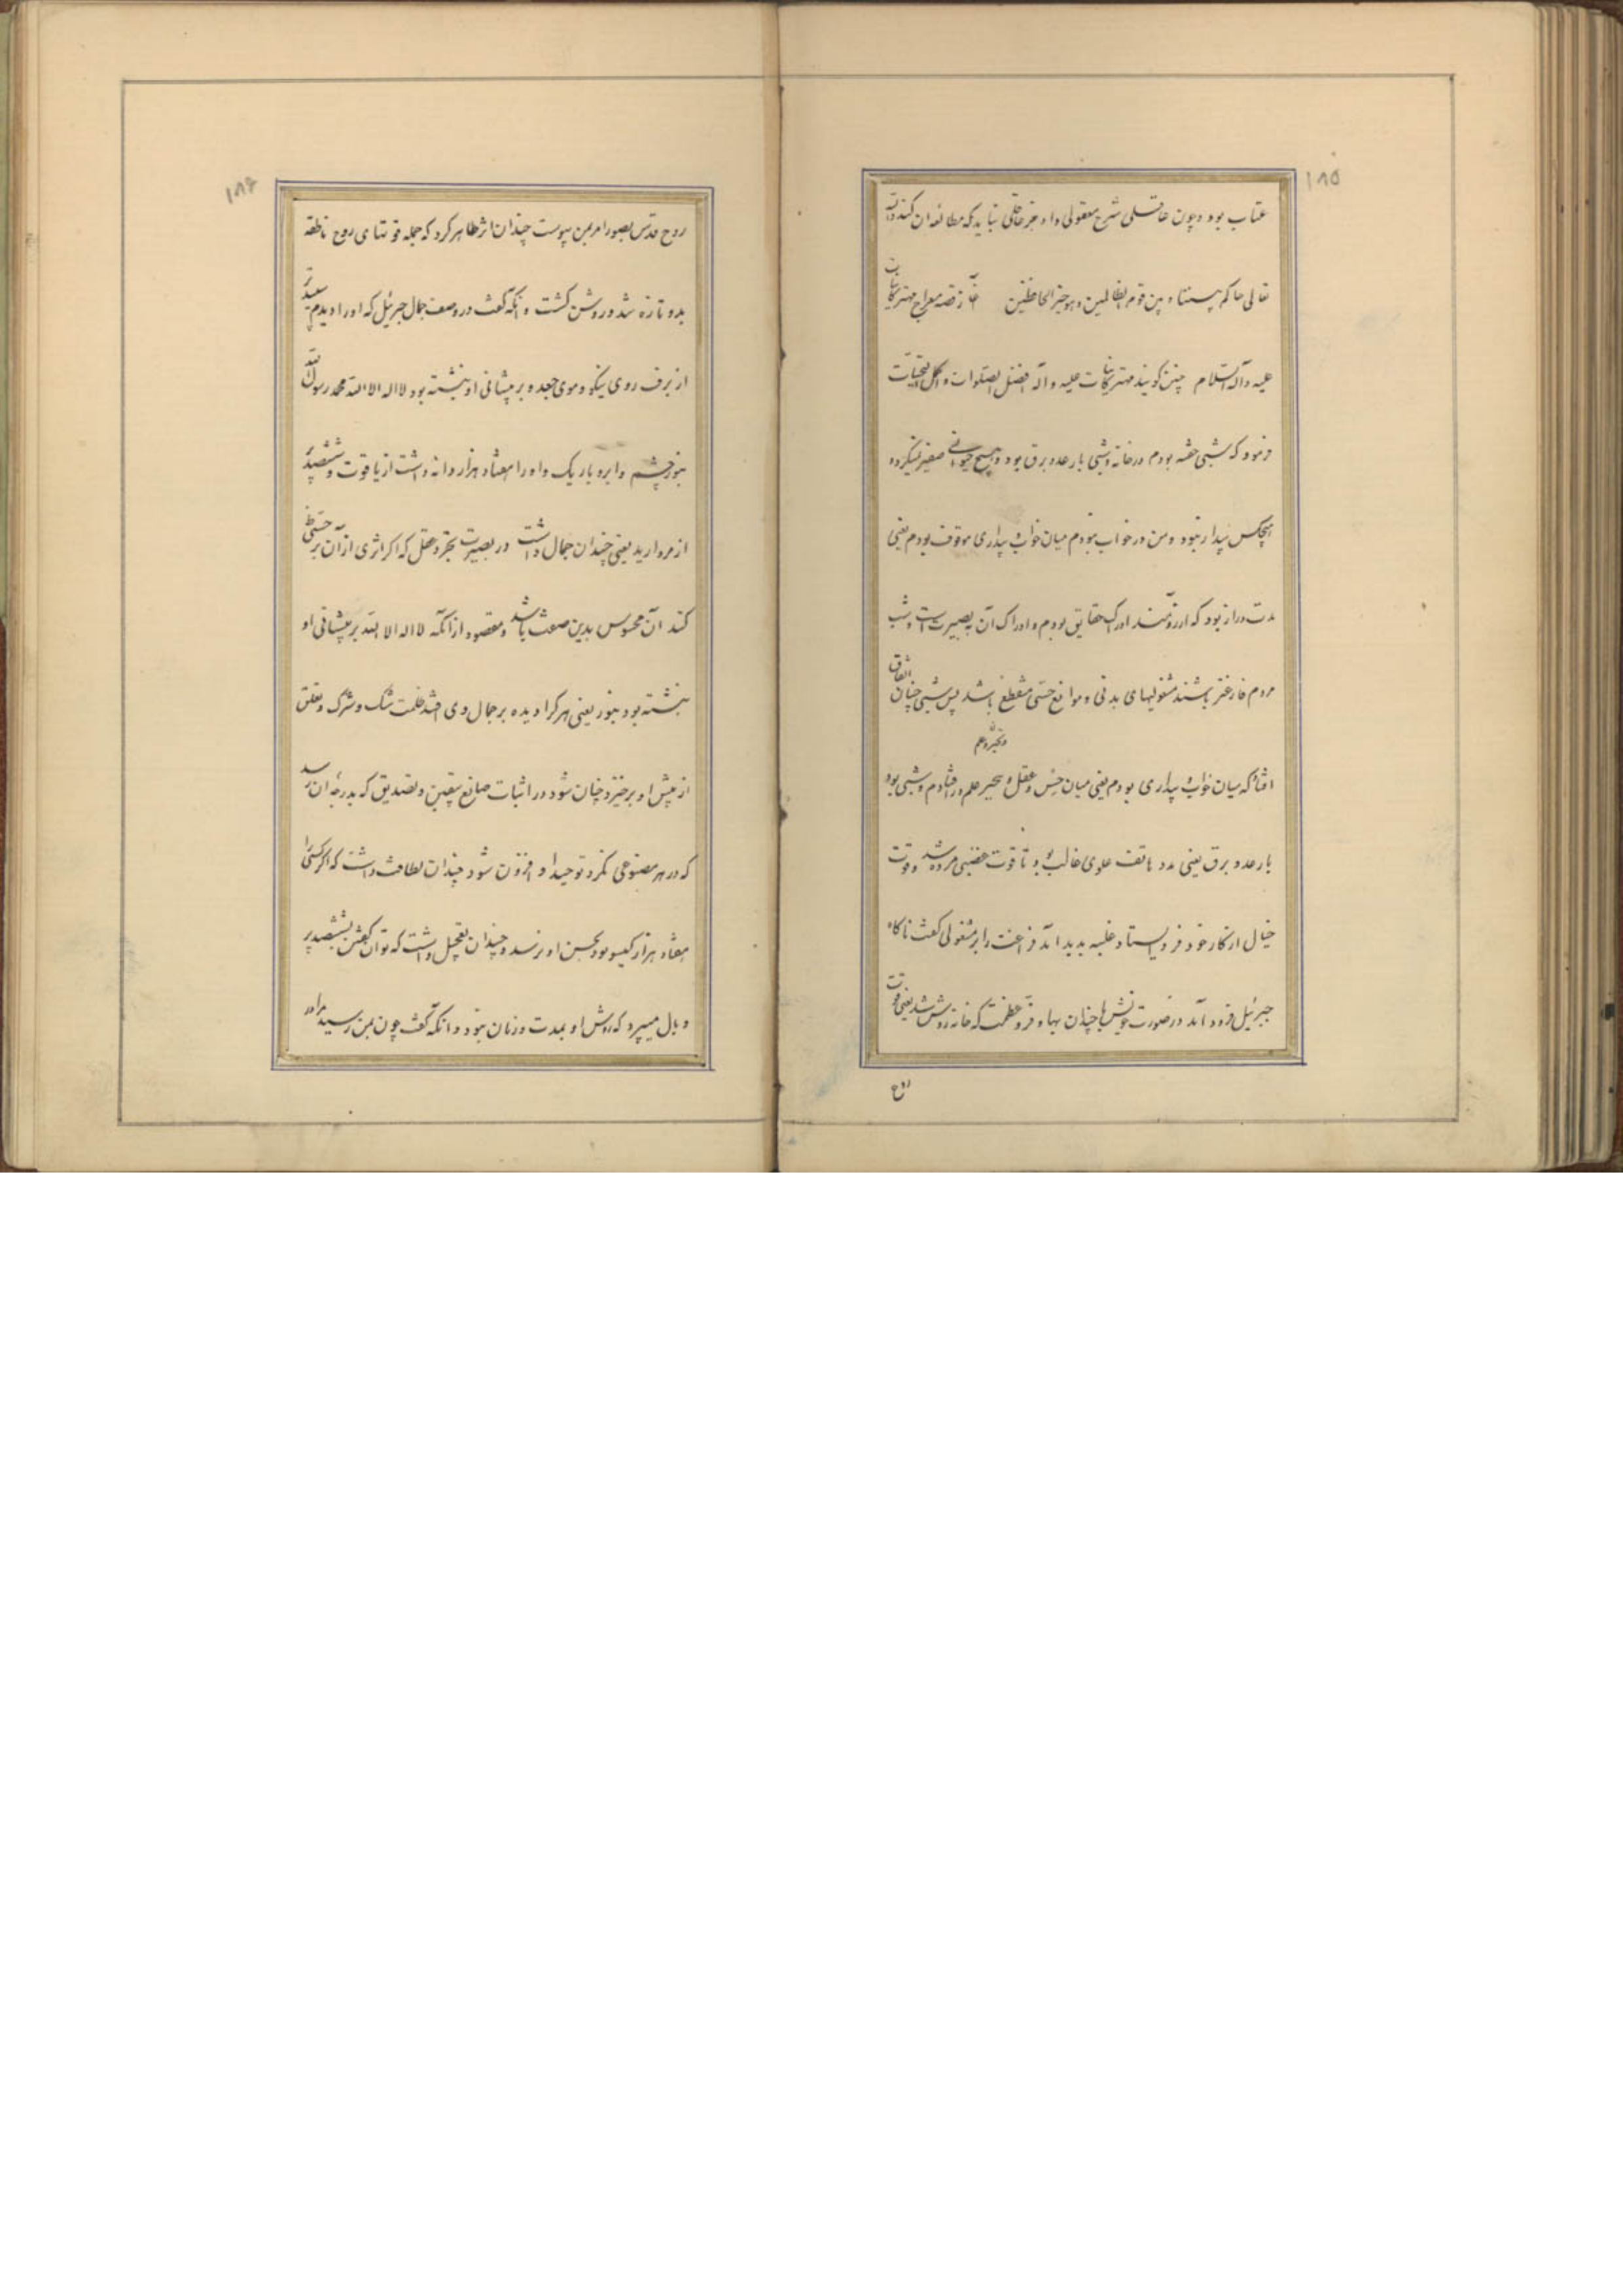 ۱۸۵
عتاب بود و چون عاقلی شرح معقولی داد جز عاقلی نباید که مطالعه ان کند
تعالی حاکم است میان و بین قوم الظالمین و هو خیر الحافظین آغاز قصه معراج مهتر کاینات
علیه و آله السلام چنین گویند مهتر کاینات علیه و آله افضل الصلوات و اکمل التحیات
فرمود که شبی خفته بودم در خانه و شبی با رعد و برق بود و هیچ حیوانی صفیر نمیکرد و
هیچکس بیدار نبود و من در خواب نبودم میان خواب و بیداری موقوف بودم یعنی
مدت دراز بود که آرزومند ادراک حقایق بودم و ادراک آن به بصیرت است و شب
مردم فارغتر باشند مشغولیهای بدنی و موانع حسی منقطع باشد پس شبی چنان اتفاق
افتاد که میان خواب و بیداری بودم یعنی میان حس و عقل و ببحر علم در افتادم و شبی بود
با رعد و برق یعنی مدد هاتف علوی غالب بود تا قوت غضبی مرده شد و قوت
خیال از کار خود فرو ایستاد و غلبه بدید آمد فراغت را بر مشغولی گفت ناگاه
جبرئیل فرود آمد در صورت خویش با چندان بها و فر و عظمت که خانه روشن شد یعنی قوت
روح
۱۸۶
روح قدس بصورة امر بمن پیوست چندان اثر ظاهر کرد که جمله قوتهای روح ناطقه
بدو تازه شد و روشن گشت و آنکه گفت در وصف جمال جبرئیل که او را دیدم سپیدتر
از برف روی نیکو و موی جعد و بر پیشانی او نبشته بود لا اله الا الله محمد رسول الله
بنور چشم و ابرو باریک و او را هفتاد هزار دانه داشت از یاقوت و ششصد پر
از مروارید یعنی چندان جمال داشت در بصیرت بتجرد عقل که اگر اثری از آن بر حسی
کند آن محسوس بدین صفت باشد و مقصود از آنکه لا اله الا الله بر پیشانی او
نبشته بود بنور یعنی هر کرا دیده بر جمال وی افتد ظلمت شک و شرک و تعلق
از پیش او برخیزد چنان شود در اثبات صانع بیقین و تصدیق که بدرجهٔ ان رسد
که در هر مصنوعی نگرد توحید او افزون شود چندان لطافت داشت که اگر کسی را
هفتاد هزار گیسو بود بحسن او نرسد و چندان تعجیل داشت که تو ان گفتی بششصد پر
و بال میپرد که روش او بمدت و زمان نبود و آنکه گفت چون بمن رسید مرا در